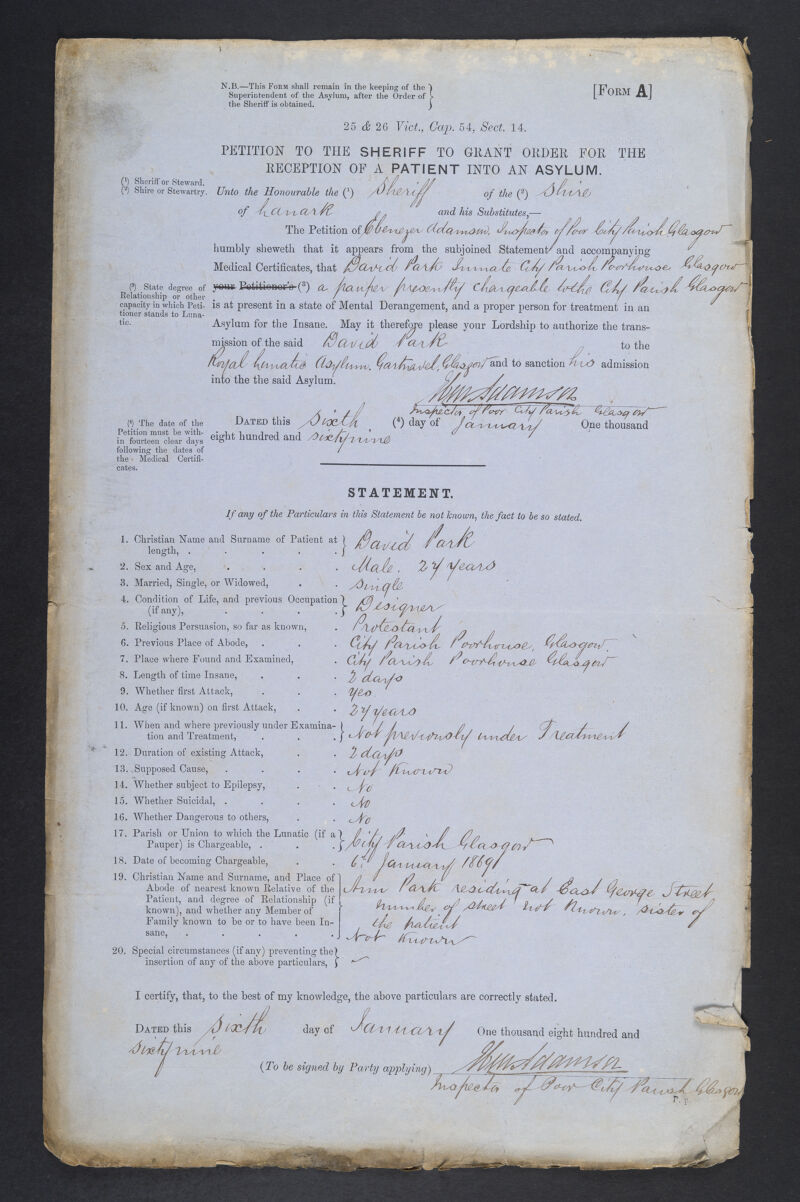 N.B.—This Form shall remain in the keeping of the
Superintendent of the Asylum, after the Order of
the Sheriff is obtained.
[Form A]
25 & 26 Vict., Cap. 54, Sect. 14.
PETITION TO THE SHERIFF TO GRANT ORDER FOR THE
RECEPTION OF A PATIENT INTO AN ASYLUM.
(¹) Sheriff or Steward.
(²) Shire or Stewartry.
Unto the Honourable the (¹) Sheriff of the (²) Shire
of Lanark and his Substitutes,—
The Petition of Ebenezer Adamson, Inspector of Poor City Parish Glasgow
humbly sheweth that it appears from the subjoined Statement and accompanying
Medical Certificates, that David Park Inmate City Parish Poorhouse Glasgow
(³) State degree of
Relationship or other
capacity in which Peti-
tioner stands to Luna-
tic.
your Petitioner's (³) a pauper presently chargeable to the City Parish Glasgow
is at present in a state of Mental Derangement, and a proper person for treatment in an
Asylum for the Insane. May it therefore please your Lordship to authorize the trans-
mission of the said David Park to the
Royal Lunatic Asylum, Gartnavel, Glasgow and to sanction his admission
into the the said Asylum.
Adamson
Inspector of Poor City Parish Glasgow
(⁴) The date of the
Petition must be with-
in fourteen clear days
following the dates of
the Medical Certifi-
cates.
Dated this Sixth (⁴) day of January One thousand
eight hundred and sixty nine
STATEMENT.
If any of the Particulars in this Statement be not known, the fact to be so stated.
1. Christian Name and Surname of Patient at
length, . . . . . David Park
2. Sex and Age, . . . . Male. 27 years
3. Married, Single, or Widowed, . . Single
4. Condition of Life, and previous Occupation
(if any), . . . . Designer
5. Religious Persuasion, so far as known, . Protestant
6. Previous Place of Abode, . . . City Parish Poorhouse, Glasgow.
7. Place where Found and Examined, . City Parish Poorhouse Glasgow
8. Length of time Insane, . . . 2 days
9. Whether first Attack, . . . Yes
10. Age (if known) on first Attack, . . 27 years
11. When and where previously under Examina-
tion and Treatment, . . . Not previously under Treatment
12. Duration of existing Attack, . . 2 days
13. Supposed Cause, . . . . Not Known
14. Whether subject to Epilepsy, . . No
15. Whether Suicidal, . . . . No
16. Whether Dangerous to others, . . No
17. Parish or Union to which the Lunatic (if a
Pauper) is Chargeable, . . . City Parish Glasgow
18. Date of becoming Chargeable, . . 6th January 1869
19. Christian Name and Surname, and Place of
Abode of nearest known Relative of the
Patient, and degree of Relationship (if
known), and whether any Member of
Family known to be or to have been In-
sane, . . . . . .
Ann Park residing at East George Street
number of street not known, sister of
the patient
Not Known
20. Special circumstances (if any) preventing the
insertion of any of the above particulars,
I certify, that, to the best of my knowledge, the above particulars are correctly stated.
Dated this Sixth day of January One thousand eight hundred and
Sixty nine
(To be signed by Party applying) Adamson
Inspector of Poor City Parish Glasgow